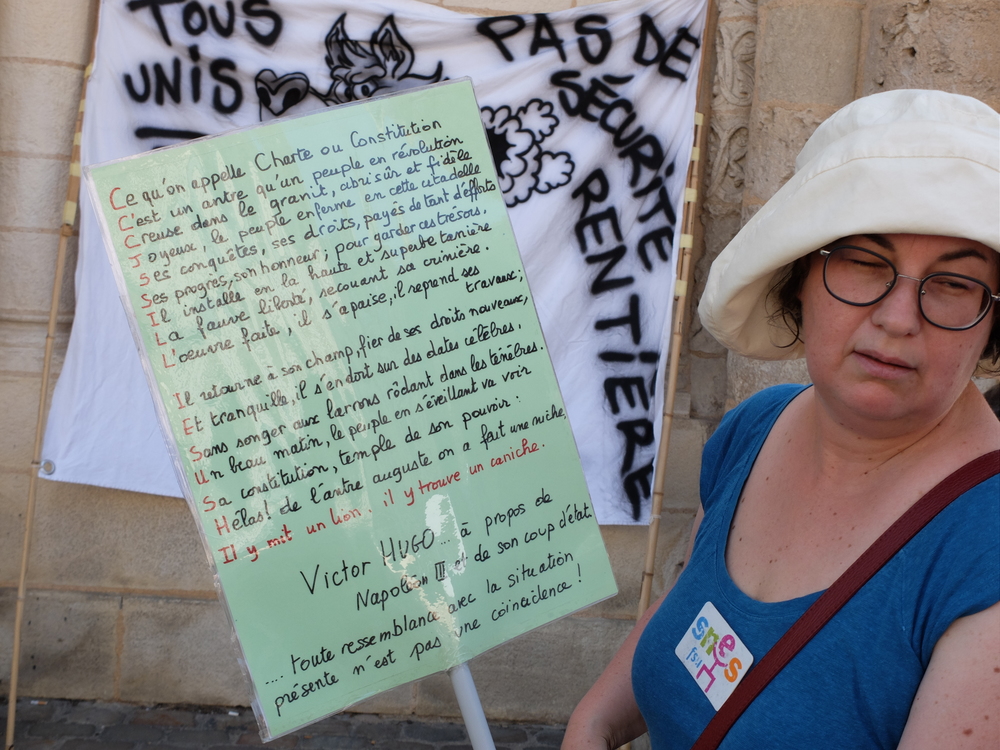 TOUS
UNIS
PAS DE
SÉCURITÉ
RENTIÈRE
Ce qu'on appelle Charte ou Constitution
C'est un antre qu'un peuple en révolution
Creuse dans le granit, abri sûr et fidèle
Joyeux, le peuple enferme en cette citadelle
Ses conquêtes, ses droits, payés de tant d'efforts
Ses progrès, son honneur; pour garder ces trésors,
Il installe en la haute et superbe tanière
La fauve liberté, secouant sa crinière.
L'oeuvre faite, il s'apaise, il reprend ses travaux;
Il retourne à son champ, fier de ses droits nouveaux,
Et tranquille, il s'endort sur des dates célèbres,
Sans songer aux larrons rôdant dans les ténèbres.
Un beau matin, le peuple en s'éveillant va voir
Sa constitution, temple de son pouvoir:
Hélas! de l'antre auguste on a fait une niche,
Il y mit un lion. il y trouve un caniche.
Victor HUGO... à propos de
Napoléon III et de son coup d'état
.... toute ressemblance avec la situation
présente n'est pas une coïncidence!
snes
fsu